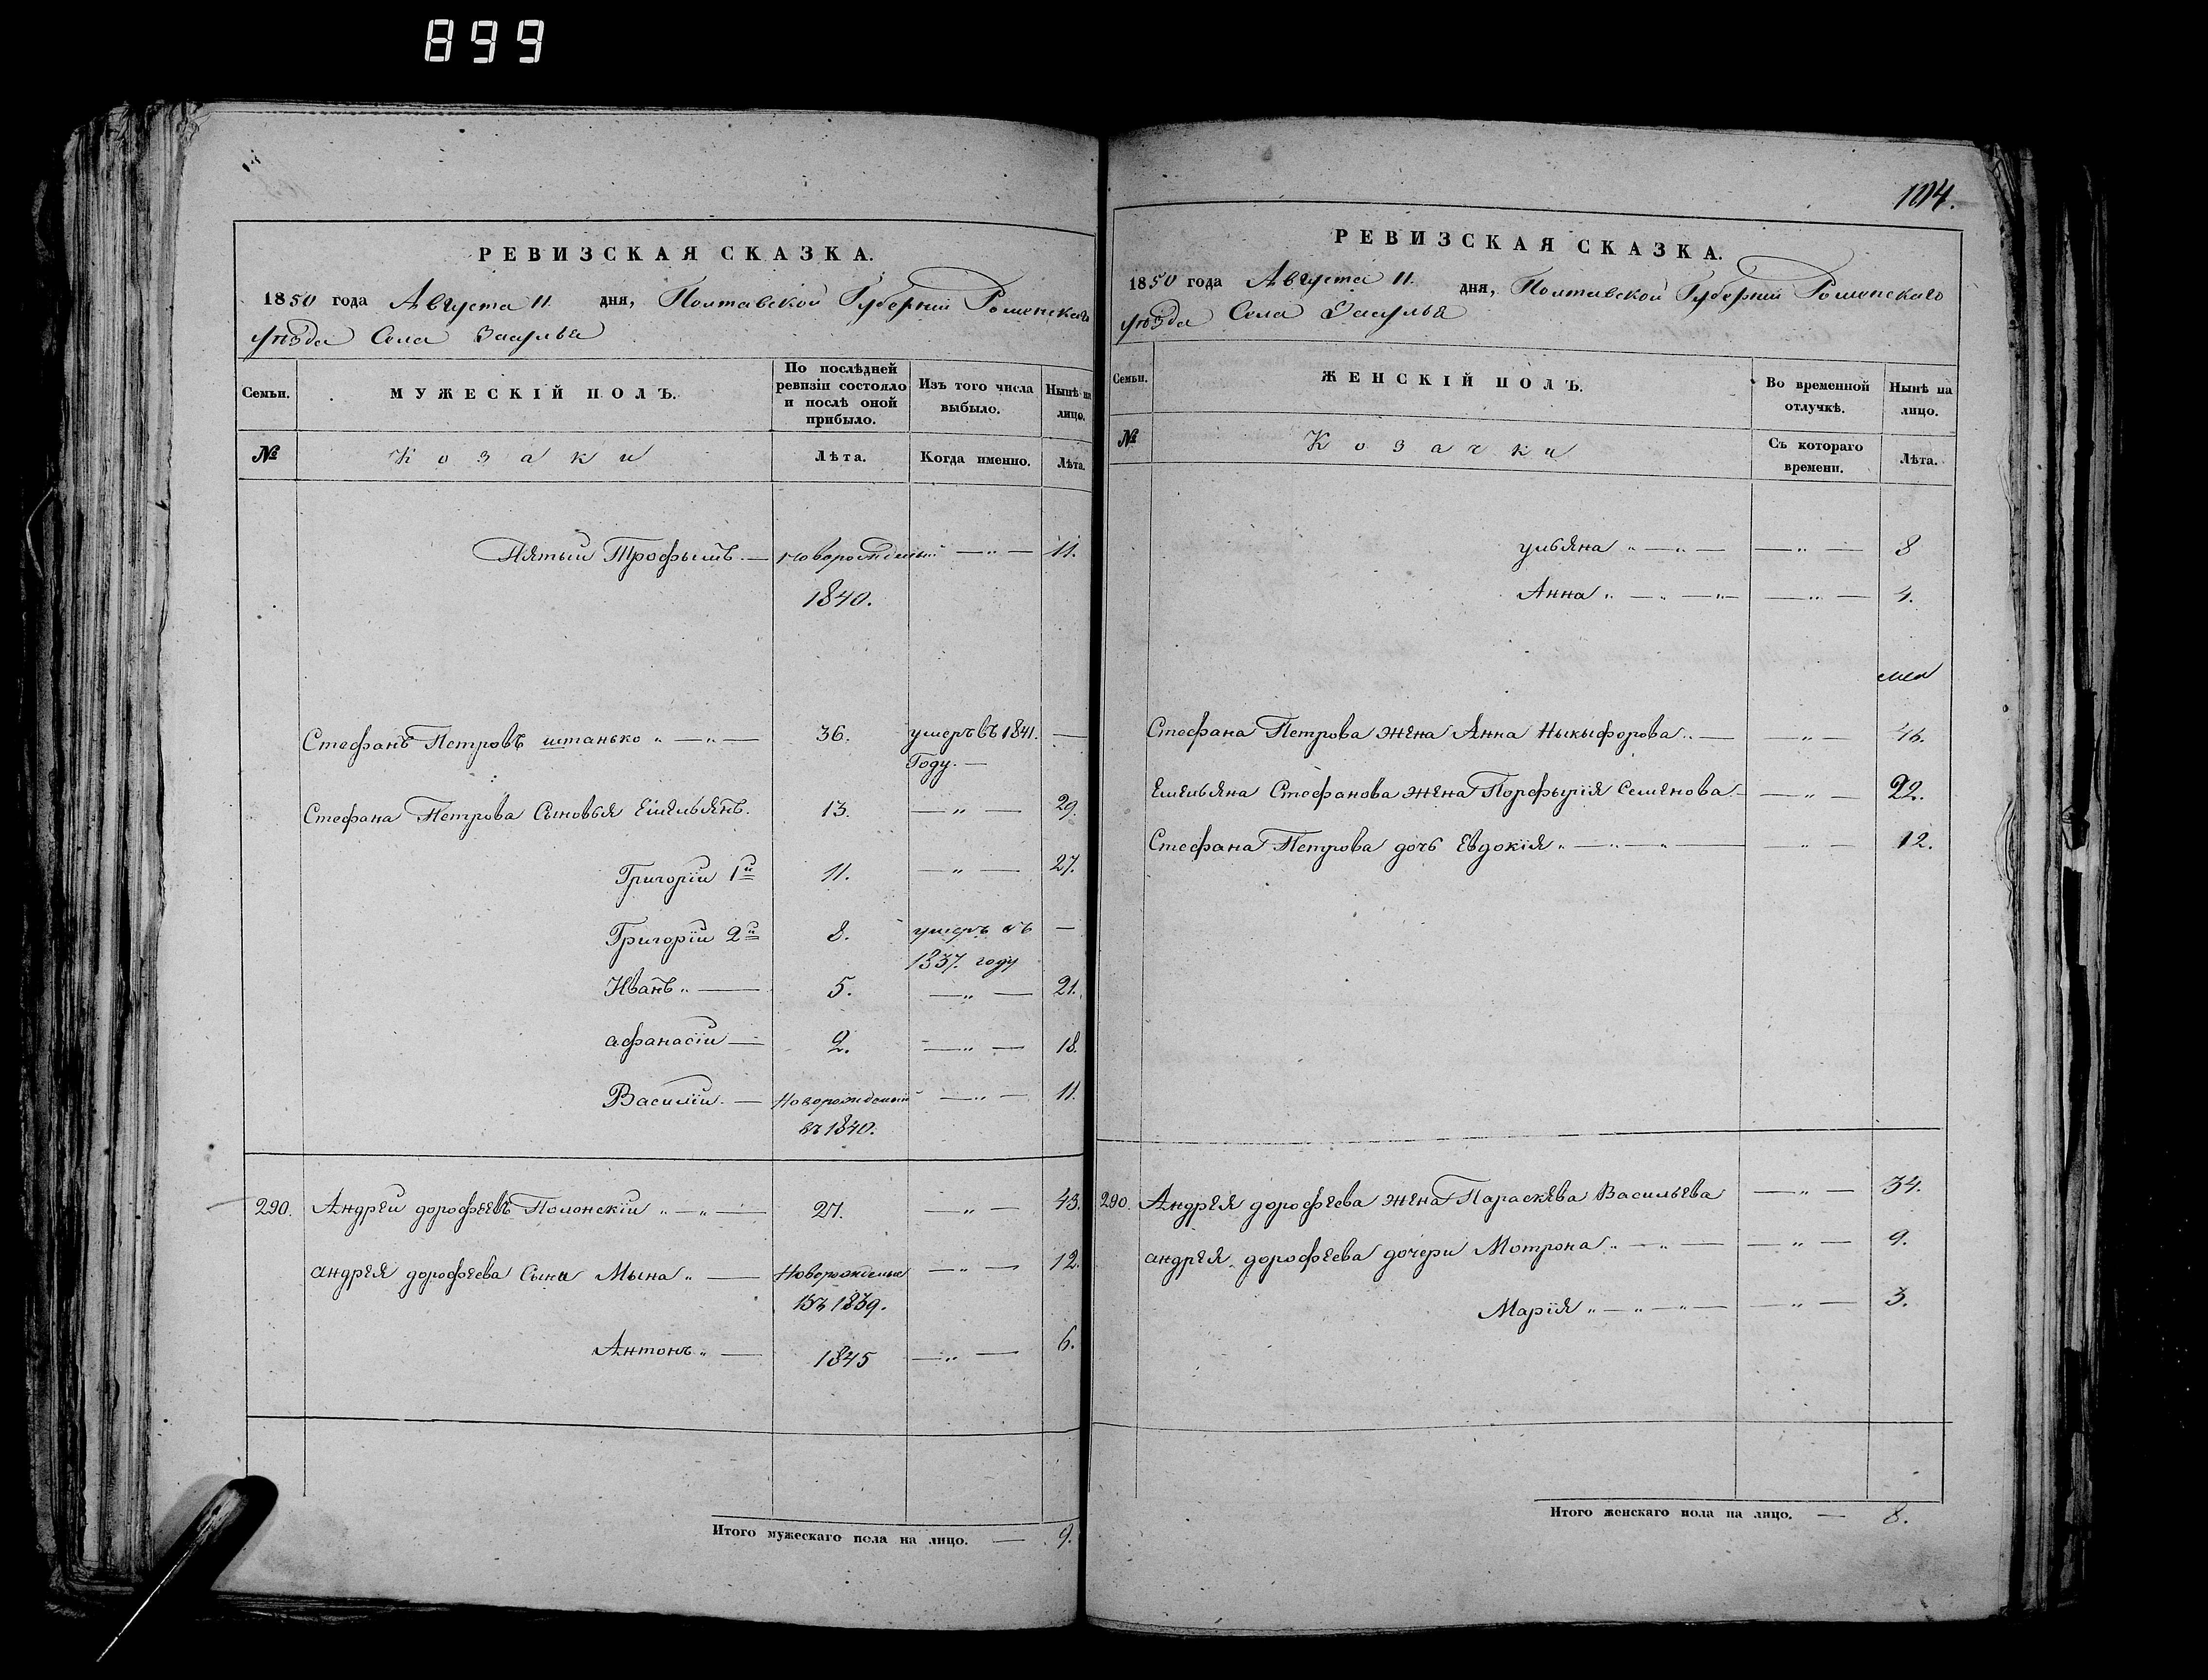 899
РЕВИЗСКАЯ СКАЗКА.
1850 года Августа 11. дня, Полтавской Губернии Роменскаго
уѣзда Села Засулья
Семьи. МУЖЕСКІЙ ПОЛЪ. По послѣдней ревизіи состояло и послѣ оной прибыло. Изъ того числа выбыло. Нынѣ на лицо.
№ Козаки Лѣта. Когда именно. Лѣта.
Пятый Трофымъ. — новорожденый — „ — 11.
1840.
Стефанъ Петровъ штанько „ — „ — 36. умеръ въ 1841. —
Году. —
Стефана Петрова Сыновья Емельянъ. 13. — „ — 29.
Григорій 1й 11. — „ — 27.
Григорій 2й 8. умеръ въ —
1837. году
Иванъ „ — 5. — „ — 21.
афанасій — 2. — „ — 18.
Василій. — Новорожденый — „ — 11.
въ 1840.
290. Андрей дорофѣевъ Полонскій „ — „ — 27. — „ — 43.
андрея дорофѣева Сыны Мына „ — Новорожденые — „ — 12.
въ 1839.
Антонъ „ — 1845 — „ — 6.
Итого мужескаго пола на лицо. — 9.
104.
РЕВИЗСКАЯ СКАЗКА.
1850 года Августа 11. дня, Полтавской Губерніи Роменскаго
уѣзда Села Засулья
Семьи. ЖЕНСКІЙ ПОЛЪ. Во временной отлучкѣ. Нынѣ на лицо.
№ Козачки Съ котораго времени. Лѣта.
ульяна „ — „ — — „ — 8
Анна „ — „ — „ — — „ — 4.
Стефана Петрова жена Анна Ныкыфорова „ — — „ — 46.
Емельяна Стефанова жена Порфырія Семенова — — „ — 22.
Стефана Петрова дочь Евдокія „ — „ — „ — „ — 12.
290. Андрея дорофѣева жена Параскева Васильева — „ — 34.
андрея дорофѣева дочери Мотрона „ — „ — — „ — 9.
Марія „ — „ — „ — — „ — 3.
Итого женскаго пола на лицо. — 8.